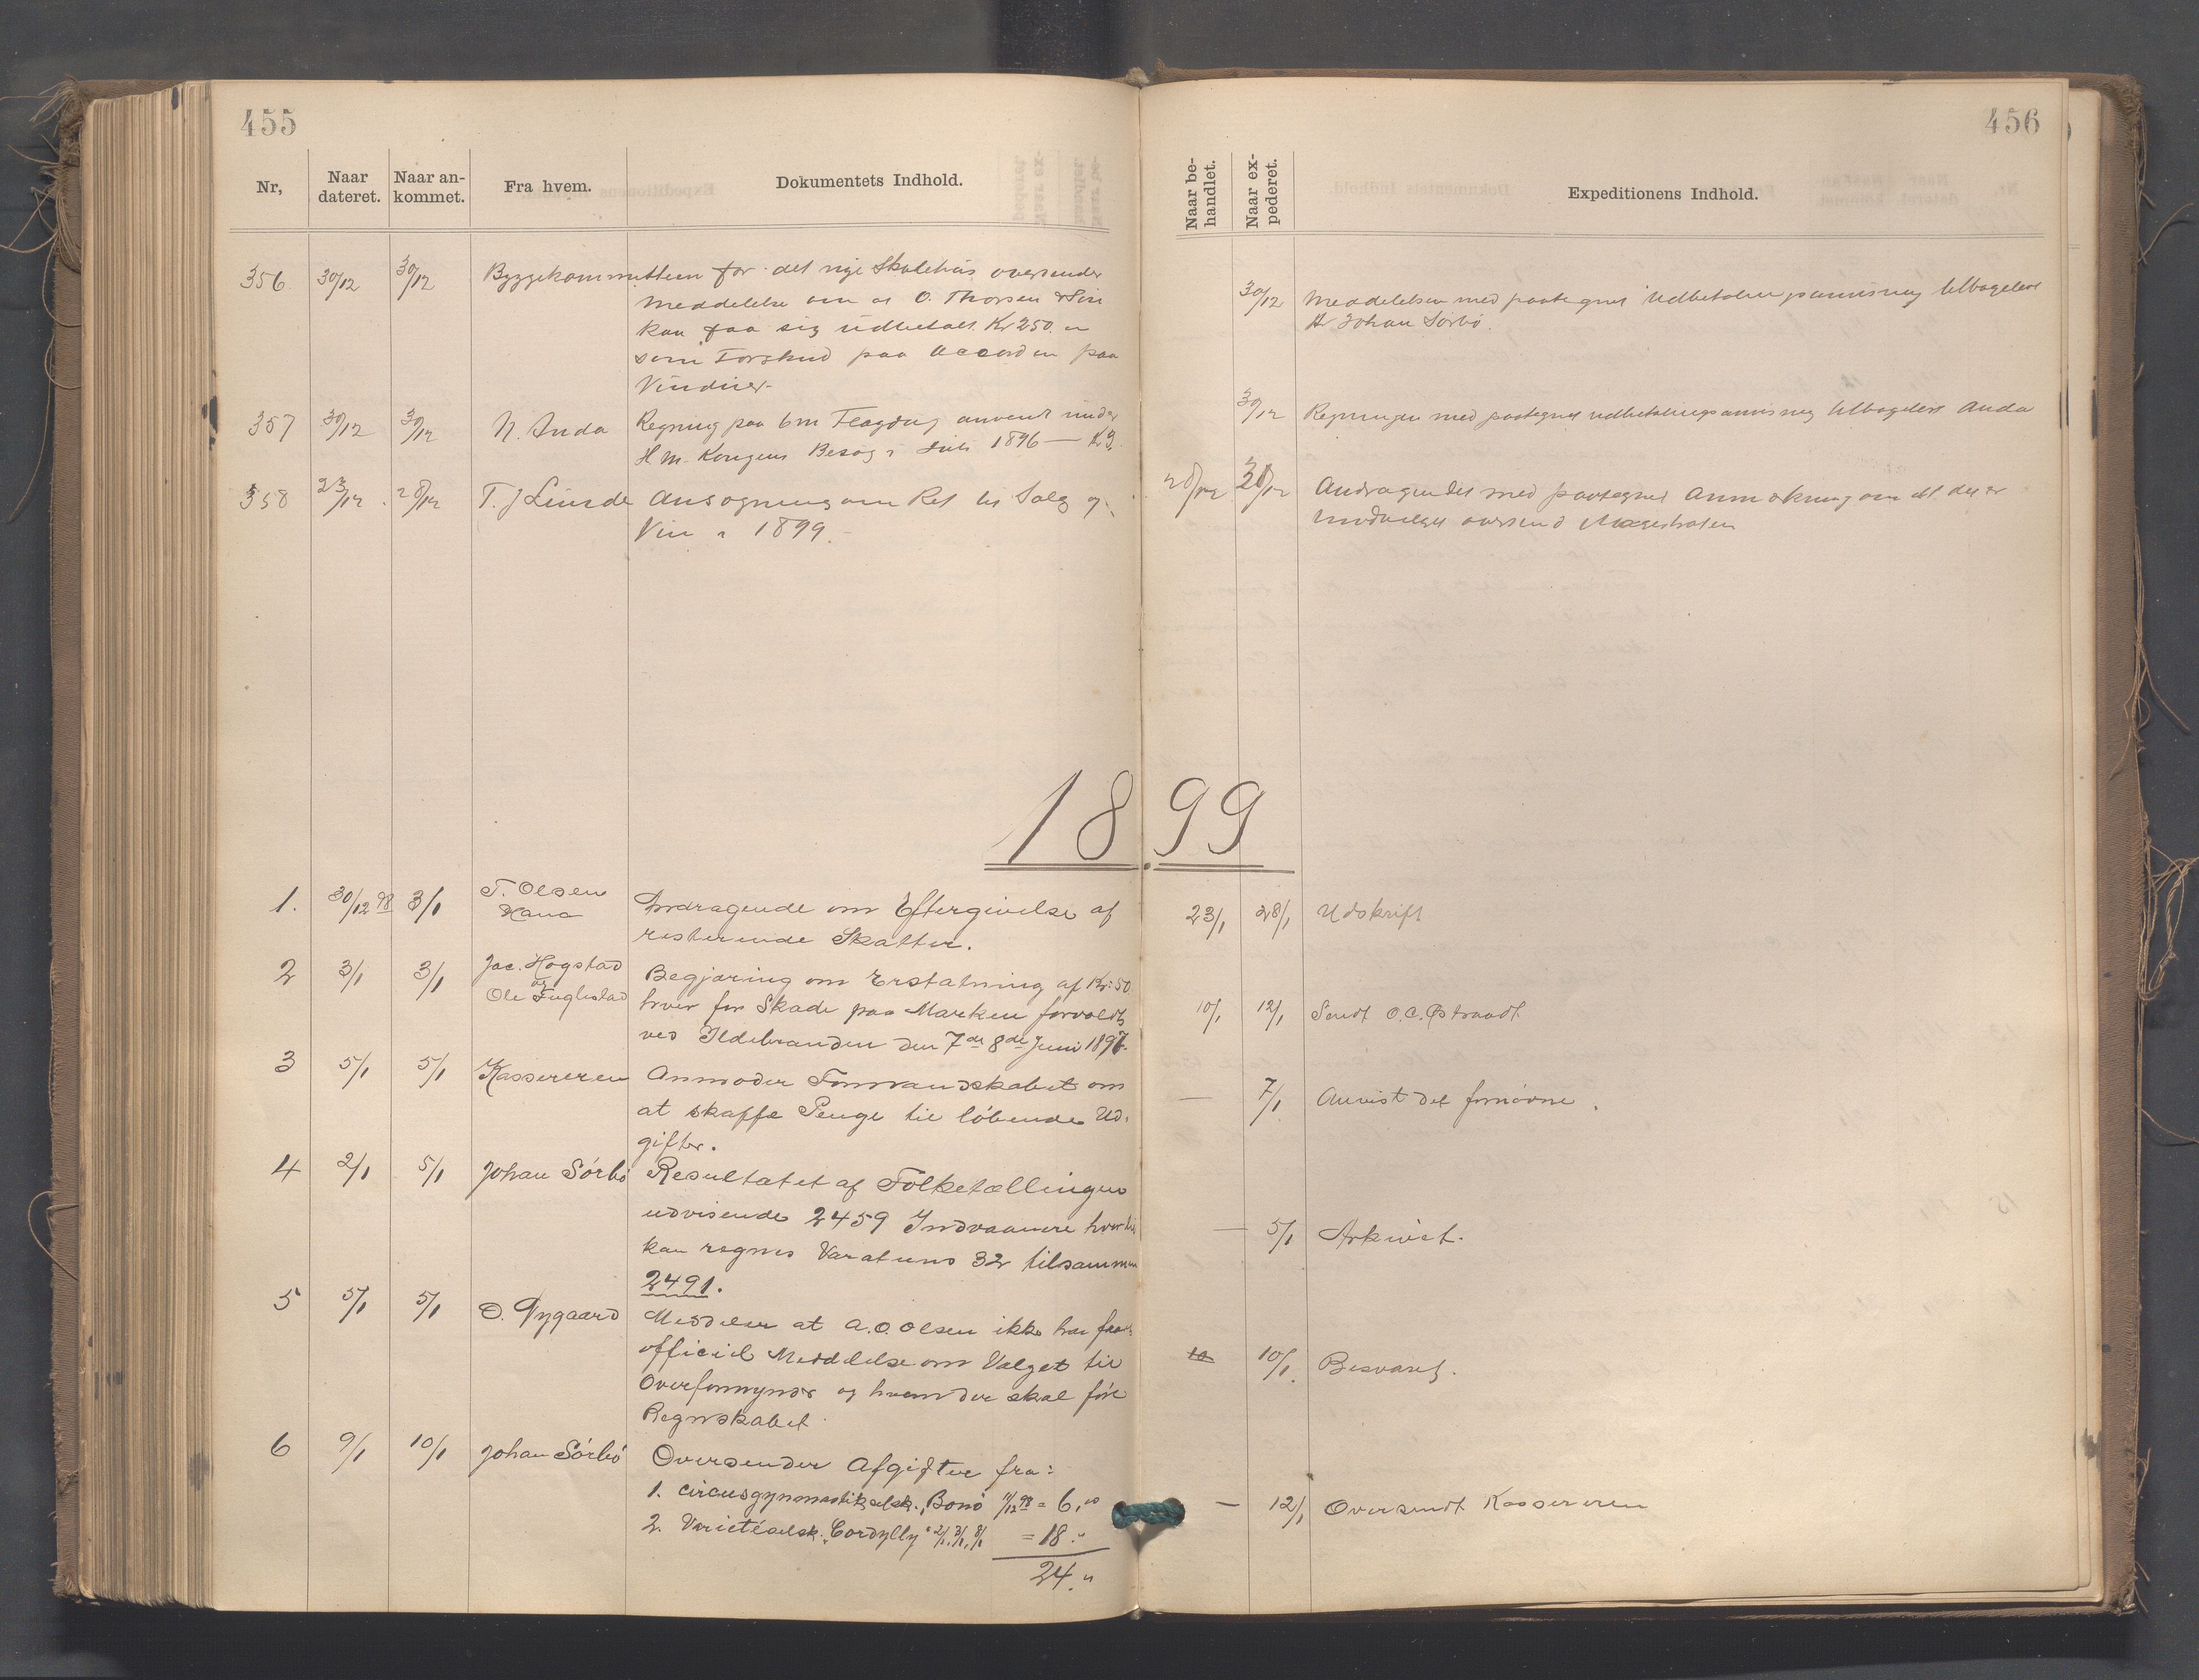 455
Nr,
Naar dateret.
Naar ankommet.
Fra hvem.
Dokumentets Indhold.
356 30/12 30/12 Byggekommitteen for det nye Skolehus oversender
Meddelelse om at O. Thorsen & Søn
kan faa sig udbetalt Kr 250.
som Forskud paa Accorden paa
Vinduer-
357 30/12 30/12 N. Anda Regning paa 6m Flagdug anvendt under
H M. Kongens Besøg i Juli 1896 — Kr 9.
358 23/12 28/12 T. J Lunde Ansøgning om Ret til Salg af
Vin i 1899.
1899
1. 30/12 98 3/1 T. Olsen Hana Andragende om Eftergivelse af
resterende Skatter.
2 3/1 3/1 Jac. Hogstad og Ole Fuglestad Begjæring om Erstatning af Kr: 50
hver for Skade paa Marken forvoldt
ved Ildebranden den 7de 8de Juni 1897.
3 5/1 5/1 Kassereren Anmoder Formandskabet om
at skaffe Penge til løbende Ud-
gifter.
4 2/1 5/1 Johan Sörbö Resultatet af Folketællingen
udvisende 2459 Indvaanere hvortil
kan regnes Varatuns 32 tilsammen
2491.
5 5/1 5/1 O. Nygaard Meddeler at A. O. Olsen ikke har faaet
officiel Meddelelse om Valget til
Overformynder og hvem der skal føre
Regnskabet
6 9/1 10/1 Johan Sörbö Oversender Afgifter fra:
1. circusgymnastikselsk. Bono 11/12 98 = 6,00
2. Varietéselsk. "Cordylly" 2/1, 3/1, 8/1 = 18.„
24.„
456
Naar behandlet.
Naar expederet.
Expeditionens Indhold.
30/12 Meddelelsen med paategnet Udbetalingsanvisning tilbagelevt
Hr Johan Sörbö.
30/12 Regningen med paategnet udbetalingsanvisning tilbagelevt Anda
28/12 30/12 Andragendet med paategnet Anmærkning om at det er
indvilget oversend Magistraten
23/1 28/1 Udskrift
10/1 12/1 Sendt O. C. Østraadt
— 7/1 Anvist det fornødne.
— 5/1 Arkivet.
10 10/1. Besvaret.
— 12/1 Oversendt Kassereren